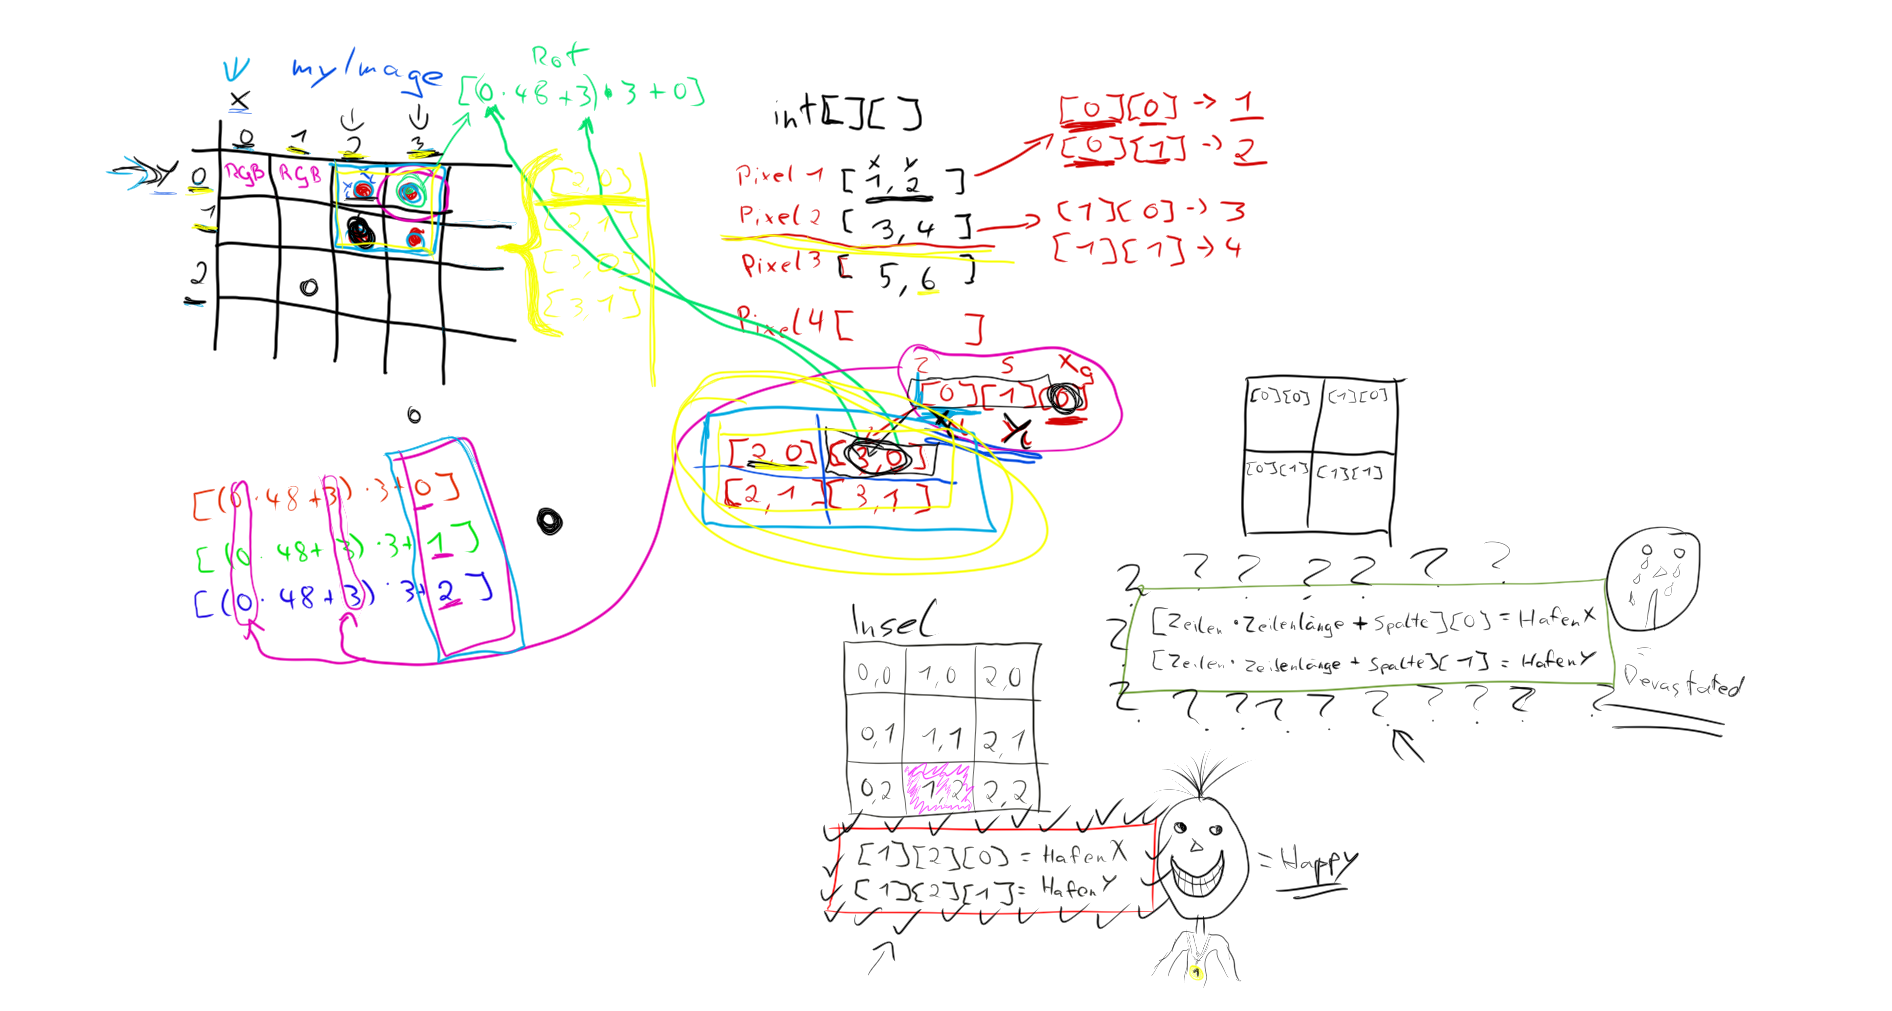 myImage
X
0 1 2 3
Y 0 RGB RGB
1
2
Rot
[(0·48+3)·3+0]
[2,0]
[2,1]
[3,0]
[3,1]
int[][]
X Y
Pixel 1 [1,2]
Pixel 2 [3,4]
Pixel 3 [5,6]
Pixel 4 [ ]
[0][0] -> 1
[0][1] -> 2
[1][0] -> 3
[1][1] -> 4
Z S X
[0][1][0]
[2,0] [3,0]
[2,1] [3,1]
[(0·48+3)·3+0]
[(0·48+3)·3+1]
[(0·48+3)·3+2]
[0][0] [1][0]
[0][1] [1][1]
? ? ? ? ? ? ?
[Zeilen·Zeilenlänge+Spalte][0] = HafenX
? [Zeilen·Zeilenlänge+Spalte][1] = HafenY
? ? ? ? ? ? ? ? ? ?
= Devastated
Insel
0,0 1,0 2,0
0,1 1,1 2,1
0,2 1,2 2,2
[1][2][0] = HafenX
[1][2][1] = HafenY
= Happy
1